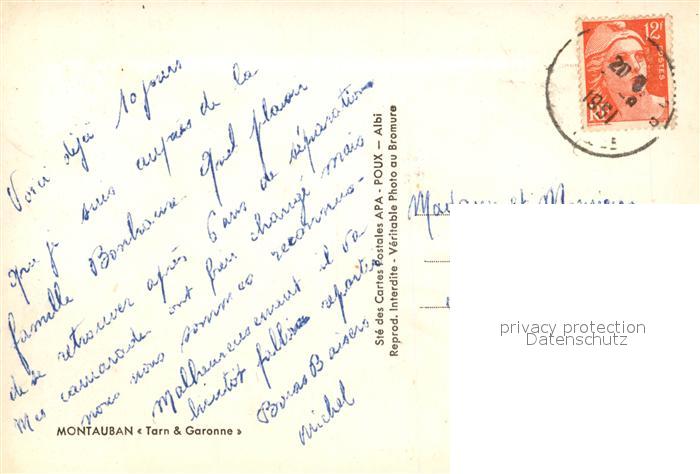 Voici déjà 10 jours
que je suis auprès de la
famille Bonhoure. Quel plaisir
de se retrouver après 6 ans de séparation
Mes camarades ont peu changé mais
nous nous sommes reconnus.
Malheureusement il va
bientôt falloir repartir
Bons Baisers
Michel
MONTAUBAN « Tarn & Garonne »
Sté des Cartes Postales APA - POUX — Albi
Reprod. Interdite - Véritable Photo au Bromure
12f
POSTES
20
1951
Madame et Monsieur
privacy protection
Datenschutz